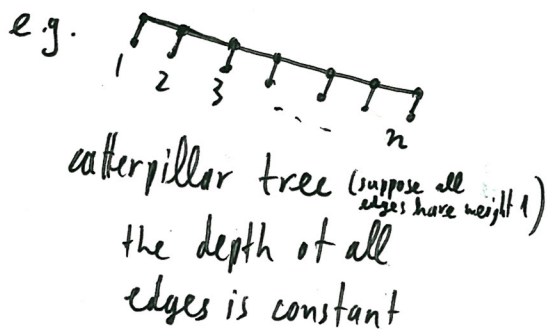 e.g.
1 2 3 . . . n
caterpillar tree (suppose all
edges have weight 1)
the depth of all
edges is constant